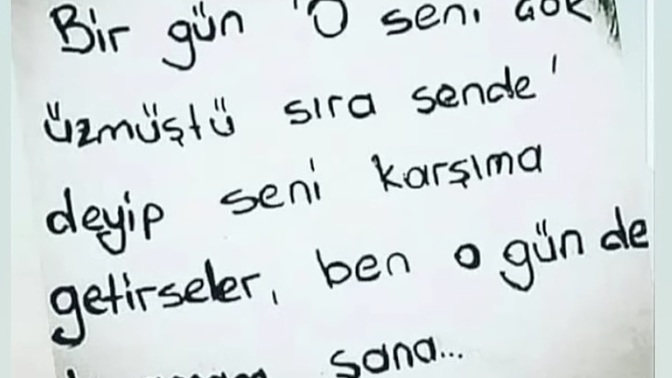 Bir gün 'O seni çok
üzmüştü sıra sende'
deyip seni karşıma
getirseler, ben o gün de
sana...